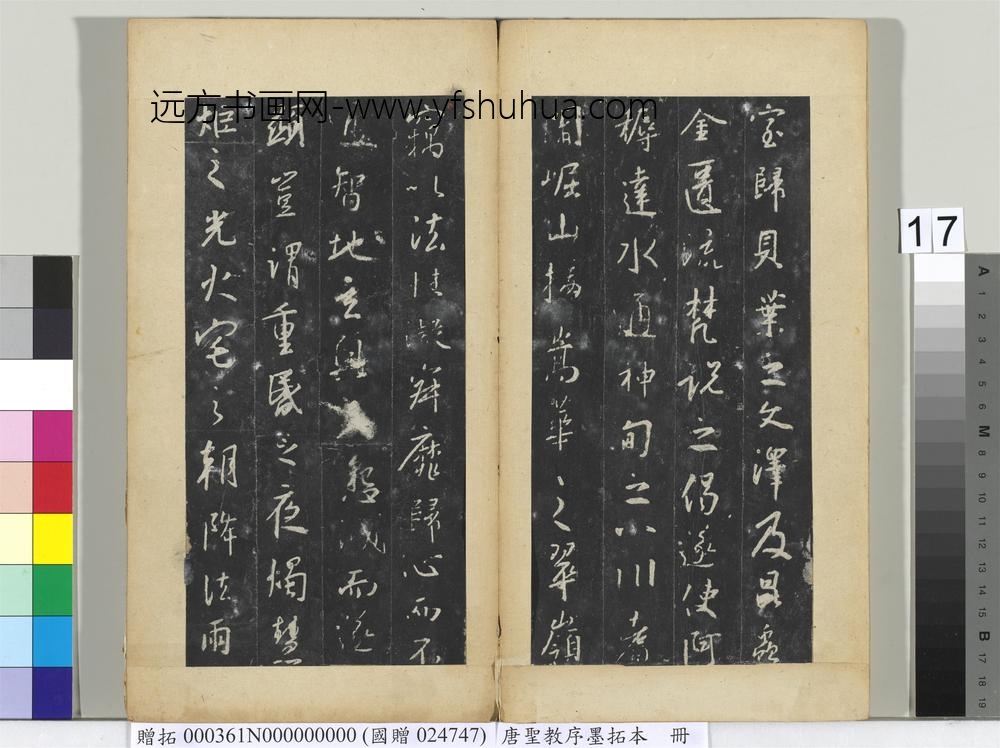 远方书画网-www.yfshuhua.com
室歸貝葉之文澤及昆蟲
金匱流梵說之偈遂使阿
耨達水通神甸之八川耆
闍崛山接嵩華之翠嶺
竊以法性凝寂靡歸心而不
通智地玄奧懇誠而遂
顯豈謂重昏之夜燭慧
炬之光火宅之朝降法雨
17
A 1 2 3 4 5 6 M 8 9 10 11 12 13 14 15 B 17 18 19
贈拓 000361N000000000 (國贈 024747) 唐聖教序墨拓本 冊